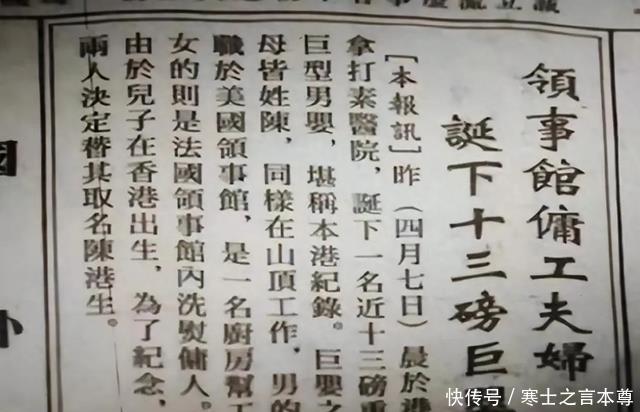 領事館傭工夫婦
誕下十三磅巨
[本報訊]昨(四月七日)晨於港
拿打素醫院，誕下一名近十三磅重
巨型男嬰，堪稱本港紀錄。巨嬰之
母皆姓陳，同樣在山頂工作，男的
職於美國領事館，是一名廚房幫工
女的則是法國領事館內洗熨傭人。
由於兒子在香港出生，為了紀念，
兩人決定替其取名陳港生。
快传号/寒士之言本尊